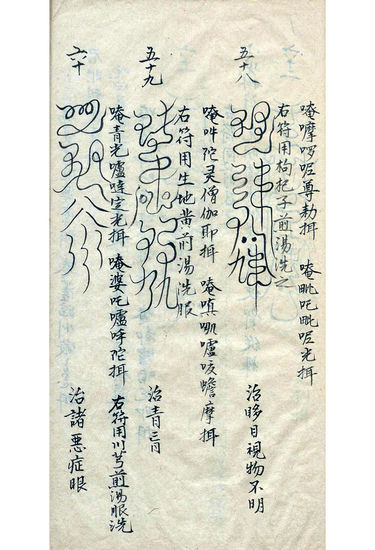 五十八
唵摩啰呢尊勅揖　唵吡吒毗呢光揖
右符用枸杞子煎湯洗之
治眵目視物不明
五十九
唵吽陀灵僧伽耶揖　唵嗔嚧唵蟾摩揖
右符用生地黄煎湯洗眼
治青盲
六十
唵青光嚧噠定光揖　唵婆吒嚧呼陀揖
右符用川芎煎湯眼洗
治諸悪症眼